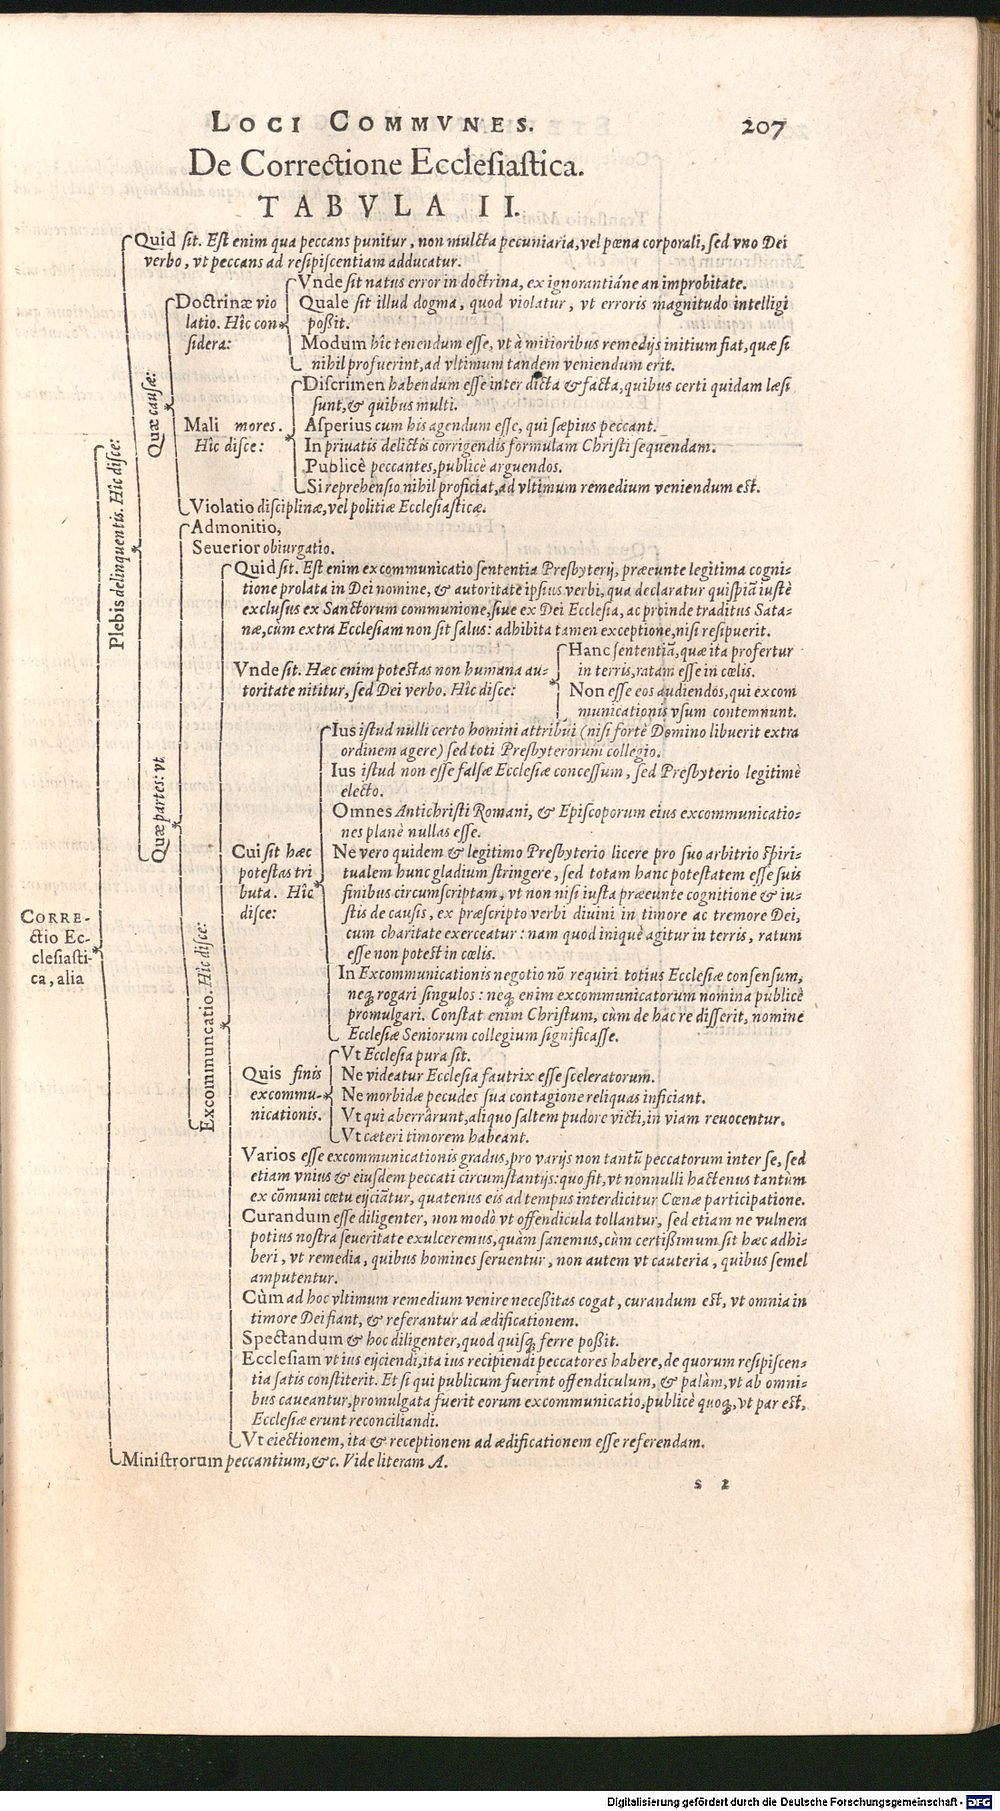 LOCI COMMVNES. 207
De Correctione Ecclesiastica.
TABVLA II.
Quid sit. Est enim qua peccans punitur, non mulcta pecuniaria, vel pœna corporali, sed vno Dei
verbo, vt peccans ad resipiscentiam adducatur.
Vnde sit natus error in doctrina, ex ignorantiáne an improbitate.
Doctrinæ vio
latio. Hîc con
sidera:
Quale sit illud dogma, quod violatur, vt erroris magnitudo intelligi
poßit.
Modum hîc tenendum esse, vt à mitioribus remedijs initium fiat, quæ si
nihil profuerint, ad vltimum tandem veniendum erit.
Quæ causæ:
Discrimen habendum esse inter dicta & facta, quibus certi quidam læsi
sunt, & quibus multi.
Mali mores.
Hîc disce:
Asperius cum his agendum esse, qui sæpius peccant.
In priuatis delictis corrigendis formulam Christi sequendam.
Publicè peccantes, publicè arguendos.
Si reprehensio nihil proficiat, ad vltimum remedium veniendum est.
Violatio disciplinæ, vel politiæ Ecclesiasticæ.
Plebis delinquentis. Hîc disce:
Admonitio,
Seuerior obiurgatio.
Quid sit. Est enim excommunicatio sententia Presbyterij, præeunte legitima cogni-
tione prolata in Dei nomine, & autoritate ipsius verbi, qua declaratur quispiã iustè
exclusus ex Sanctorum communione, siue ex Dei Ecclesia, ac proinde traditus Sata-
næ, cùm extra Ecclesiam non sit salus: adhibita tamen exceptione, nisi resipuerit.
Vnde sit. Hæc enim potestas non humana au-
toritate nititur, sed Dei verbo. Hîc disce:
Hanc sententiã, quæ ita profertur
in terris, ratam esse in cœlis.
Non esse eos audiendos, qui excom
municationis vsum contemnunt.
Quæ partes: vt
Ius istud nulli certo homini attribui (nisi fortè Domino libuerit extra
ordinem agere) sed toti Presbyterorum collegio.
Ius istud non esse falsæ Ecclesiæ concessum, sed Presbyterio legitimè
electo.
Omnes Antichristi Romani, & Episcoporum eius excommunicatio-
nes planè nullas esse.
Cui sit hæc
potestas tri
buta. Hîc
disce:
Ne vero quidem & legitimo Presbyterio licere pro suo arbitrio spiri-
tualem hunc gladium stringere, sed totam hanc potestatem esse suis
finibus circumscriptam, vt non nisi iusta præeunte cognitione & iu-
stis de causis, ex præscripto verbi diuini in timore ac tremore Dei,
cum charitate exerceatur: nam quod iniquè agitur in terris, ratum
esse non potest in cœlis.
In Excommunicationis negotio nõ requiri totius Ecclesiæ consensum,
neq; rogari singulos: neq; enim excommunicatorum nomina publicè
promulgari. Constat enim Christum, cùm de hac re disserit, nomine
Ecclesiæ Seniorum collegium significasse.
CORRE-
ctio Ec-
clesiasti-
ca, alia
Excommuncatio. Hîc disce:
Vt Ecclesia pura sit.
Quis finis
excommu-
nicationis.
Ne videatur Ecclesia fautrix esse sceleratorum.
Ne morbidæ pecudes sua contagione reliquas inficiant.
Vt qui aberrârunt, aliquo saltem pudore victi, in viam reuocentur.
Vt cæteri timorem habeant.
Varios esse excommunicationis gradus, pro varijs non tantũ peccatorum inter se, sed
etiam vnius & eiusdem peccati circumstantijs: quo fit, vt nonnulli hactenus tantùm
ex cõmuni cœtu eijciãtur, quatenus eis ad tempus interdicitur Cœnæ participatione.
Curandum esse diligenter, non modò vt offendicula tollantur, sed etiam ne vulnera
potius nostra seueritate exulceremus, quàm sanemus, cùm certißimum sit hæc adhi-
beri, vt remedia, quibus homines seruentur, non autem vt cauteria, quibus semel
amputentur.
Cùm ad hoc vltimum remedium venire neceßitas cogat, curandum est, vt omnia in
timore Dei fiant, & referantur ad ædificationem.
Spectandum & hoc diligenter, quod quisq; ferre poßit.
Ecclesiam vt ius eijciendi, ita ius recipiendi peccatores habere, de quorum resipiscen-
tia satis constiterit. Et si qui publicum fuerint offendiculum, & palàm, vt ab omni-
bus caueantur, promulgata fuerit eorum excommunicatio, publicè quoq;, vt par est,
Ecclesiæ erunt reconciliandi.
Vt eiectionem, ita & receptionem ad ædificationem esse referendam.
Ministrorum peccantium, &c. Vide literam A.
s 2
Digitalisierung gefördert durch die Deutsche Forschungsgemeinschaft - DFG